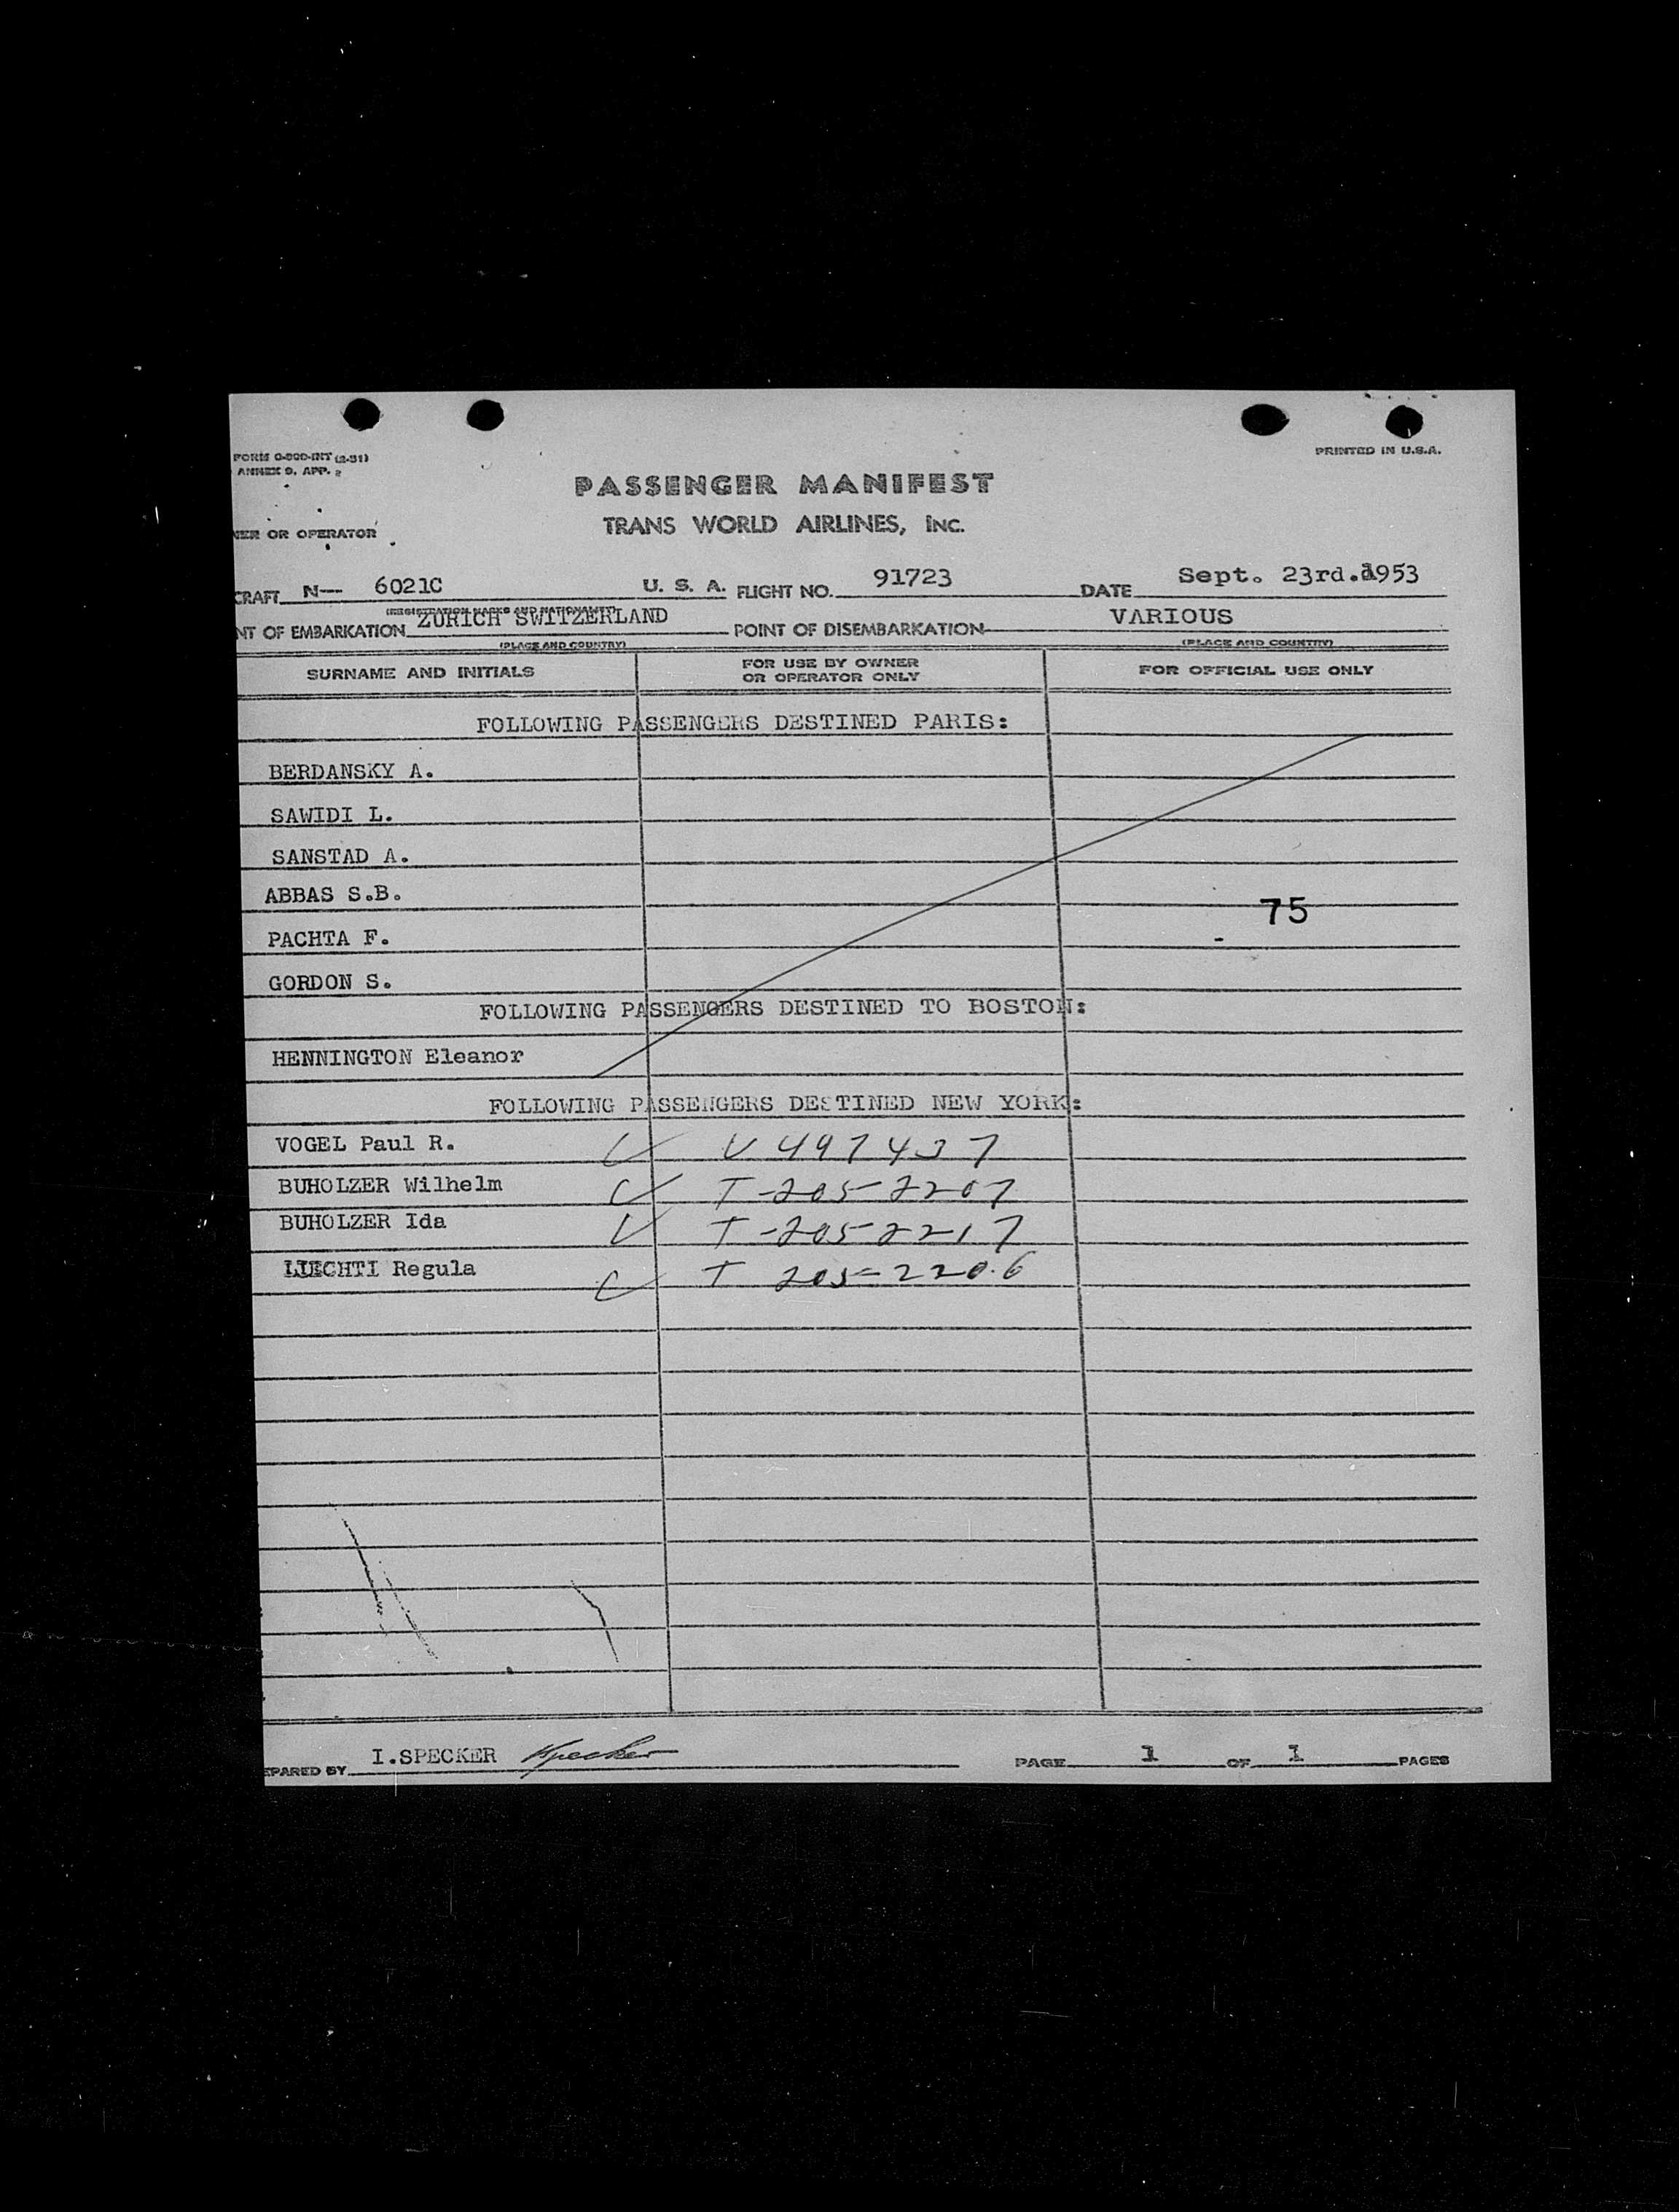 FORM O-800-INT (2-51)
ANNEX 9, APP. 2
PRINTED IN U.S.A.
PASSENGER MANIFEST
TRANS WORLD AIRLINES, INC.
NER OR OPERATOR
CRAFT N— 6021C U. S. A. FLIGHT NO. 91723 DATE Sept. 23rd. 1953
(REGISTRATION MARKS AND NATIONALITY)
NT OF EMBARKATION ZURICH SWITZERLAND POINT OF DISEMBARKATION VARIOUS
(PLACE AND COUNTRY) (PLACE AND COUNTRY)
SURNAME AND INITIALS FOR USE BY OWNER OR OPERATOR ONLY FOR OFFICIAL USE ONLY
FOLLOWING PASSENGERS DESTINED PARIS:
BERDANSKY A.
SAWIDI L.
SANSTAD A.
ABBAS S.B.
75
PACHTA F.
GORDON S.
FOLLOWING PASSENGERS DESTINED TO BOSTON:
HENNINGTON Eleanor
FOLLOWING PASSENGERS DESTINED NEW YORK:
VOGEL Paul R. V 497437
BUHOLZER Wilhelm T-205-2207
BUHOLZER Ida T-205-2217
LIECHTI Regula T 205-2206
EPARED BY I.SPECKER Specker PAGE 1 OF 1 PAGES